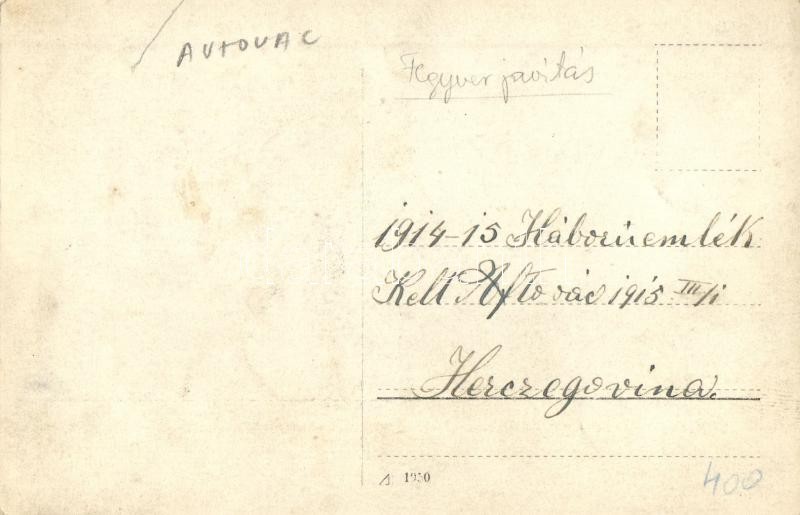 AVTOVAC
Fegyver javítás
1914-15 Háborúemlék
Kelt Aftovác 1915 III/1
Herczegovina.
1930
400